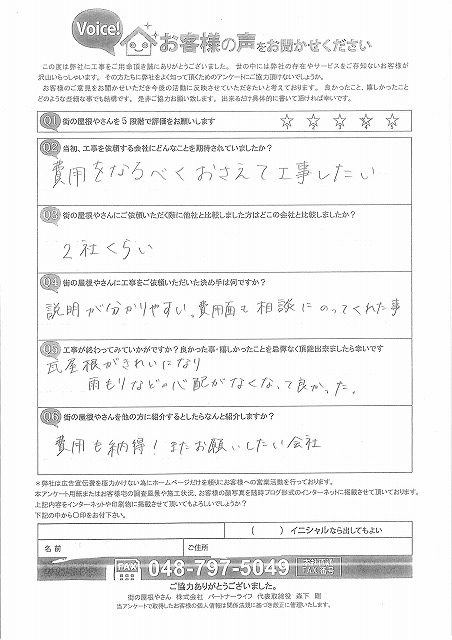 Voice!
お客様の声をお聞かせください
この度は弊社に工事をご用命頂き誠にありがとうございました。世の中には弊社の存在やサービスをご存知ないお客様が
沢山いらっしゃいます。その方たちに弊社をよく知って頂くためのアンケートにご協力頂けないでしょうか。
お客様のご意見をお聞かせいただき今後の活動に反映させていただきたいと考えております。良かったこと、嬉しかったこと
どのような些細な事でも結構です。是非ご協力お願い致します。出来るだけ具体的に書いて頂ければ幸いです。
Q1 街の屋根やさんを5段階で評価をお願いします ☆ ☆ ☆ ☆ ☆
Q2 当初、工事を依頼する会社にどんなことを期待されていましたか?
費用をなるべくおさえて工事したい
Q3 街の屋根やさんにご依頼いただく際に他社と比較しました方はどこの会社と比較しましたか?
2社くらい
Q4 街の屋根やさんに工事をご依頼いただいた決め手は何ですか?
説明が分かりやすい、費用面も相談にのってくれた事
Q5 工事が終わってみていかがですか?良かった事・嬉しかったことを忌憚なく頂戴出来ましたら幸いです
瓦屋根がきれいになり
雨もりなどの心配がなくなって良かった。
Q6 街の屋根やさんを他の方に紹介するとしたらなんと紹介しますか?
費用も納得!またお願いしたい会社
＊弊社は広告宣伝費を極力かけない為にホームページだけを頼りにお客様への営業活動を行っております。
本アンケート用紙またはお客様宅の調査風景や施工状況、お客様の顔写真を随時ブログ形式のインターネットに掲載させて頂いております。
上記内容をインターネットや印刷物に掲載させて頂いてもよろしいでしょうか?
下記の中から〇印をお付下さい。
( ) イニシャルなら出してもよい
名前 ご住所
FAX 048-797-5049
FAX番号
ご協力ありがとうございました。
街の屋根やさん 株式会社 パートナーライフ 代表取締役 森下 剛
当アンケートで取得したお客様の個人情報は関係法規に基づき厳正に管理いたします。